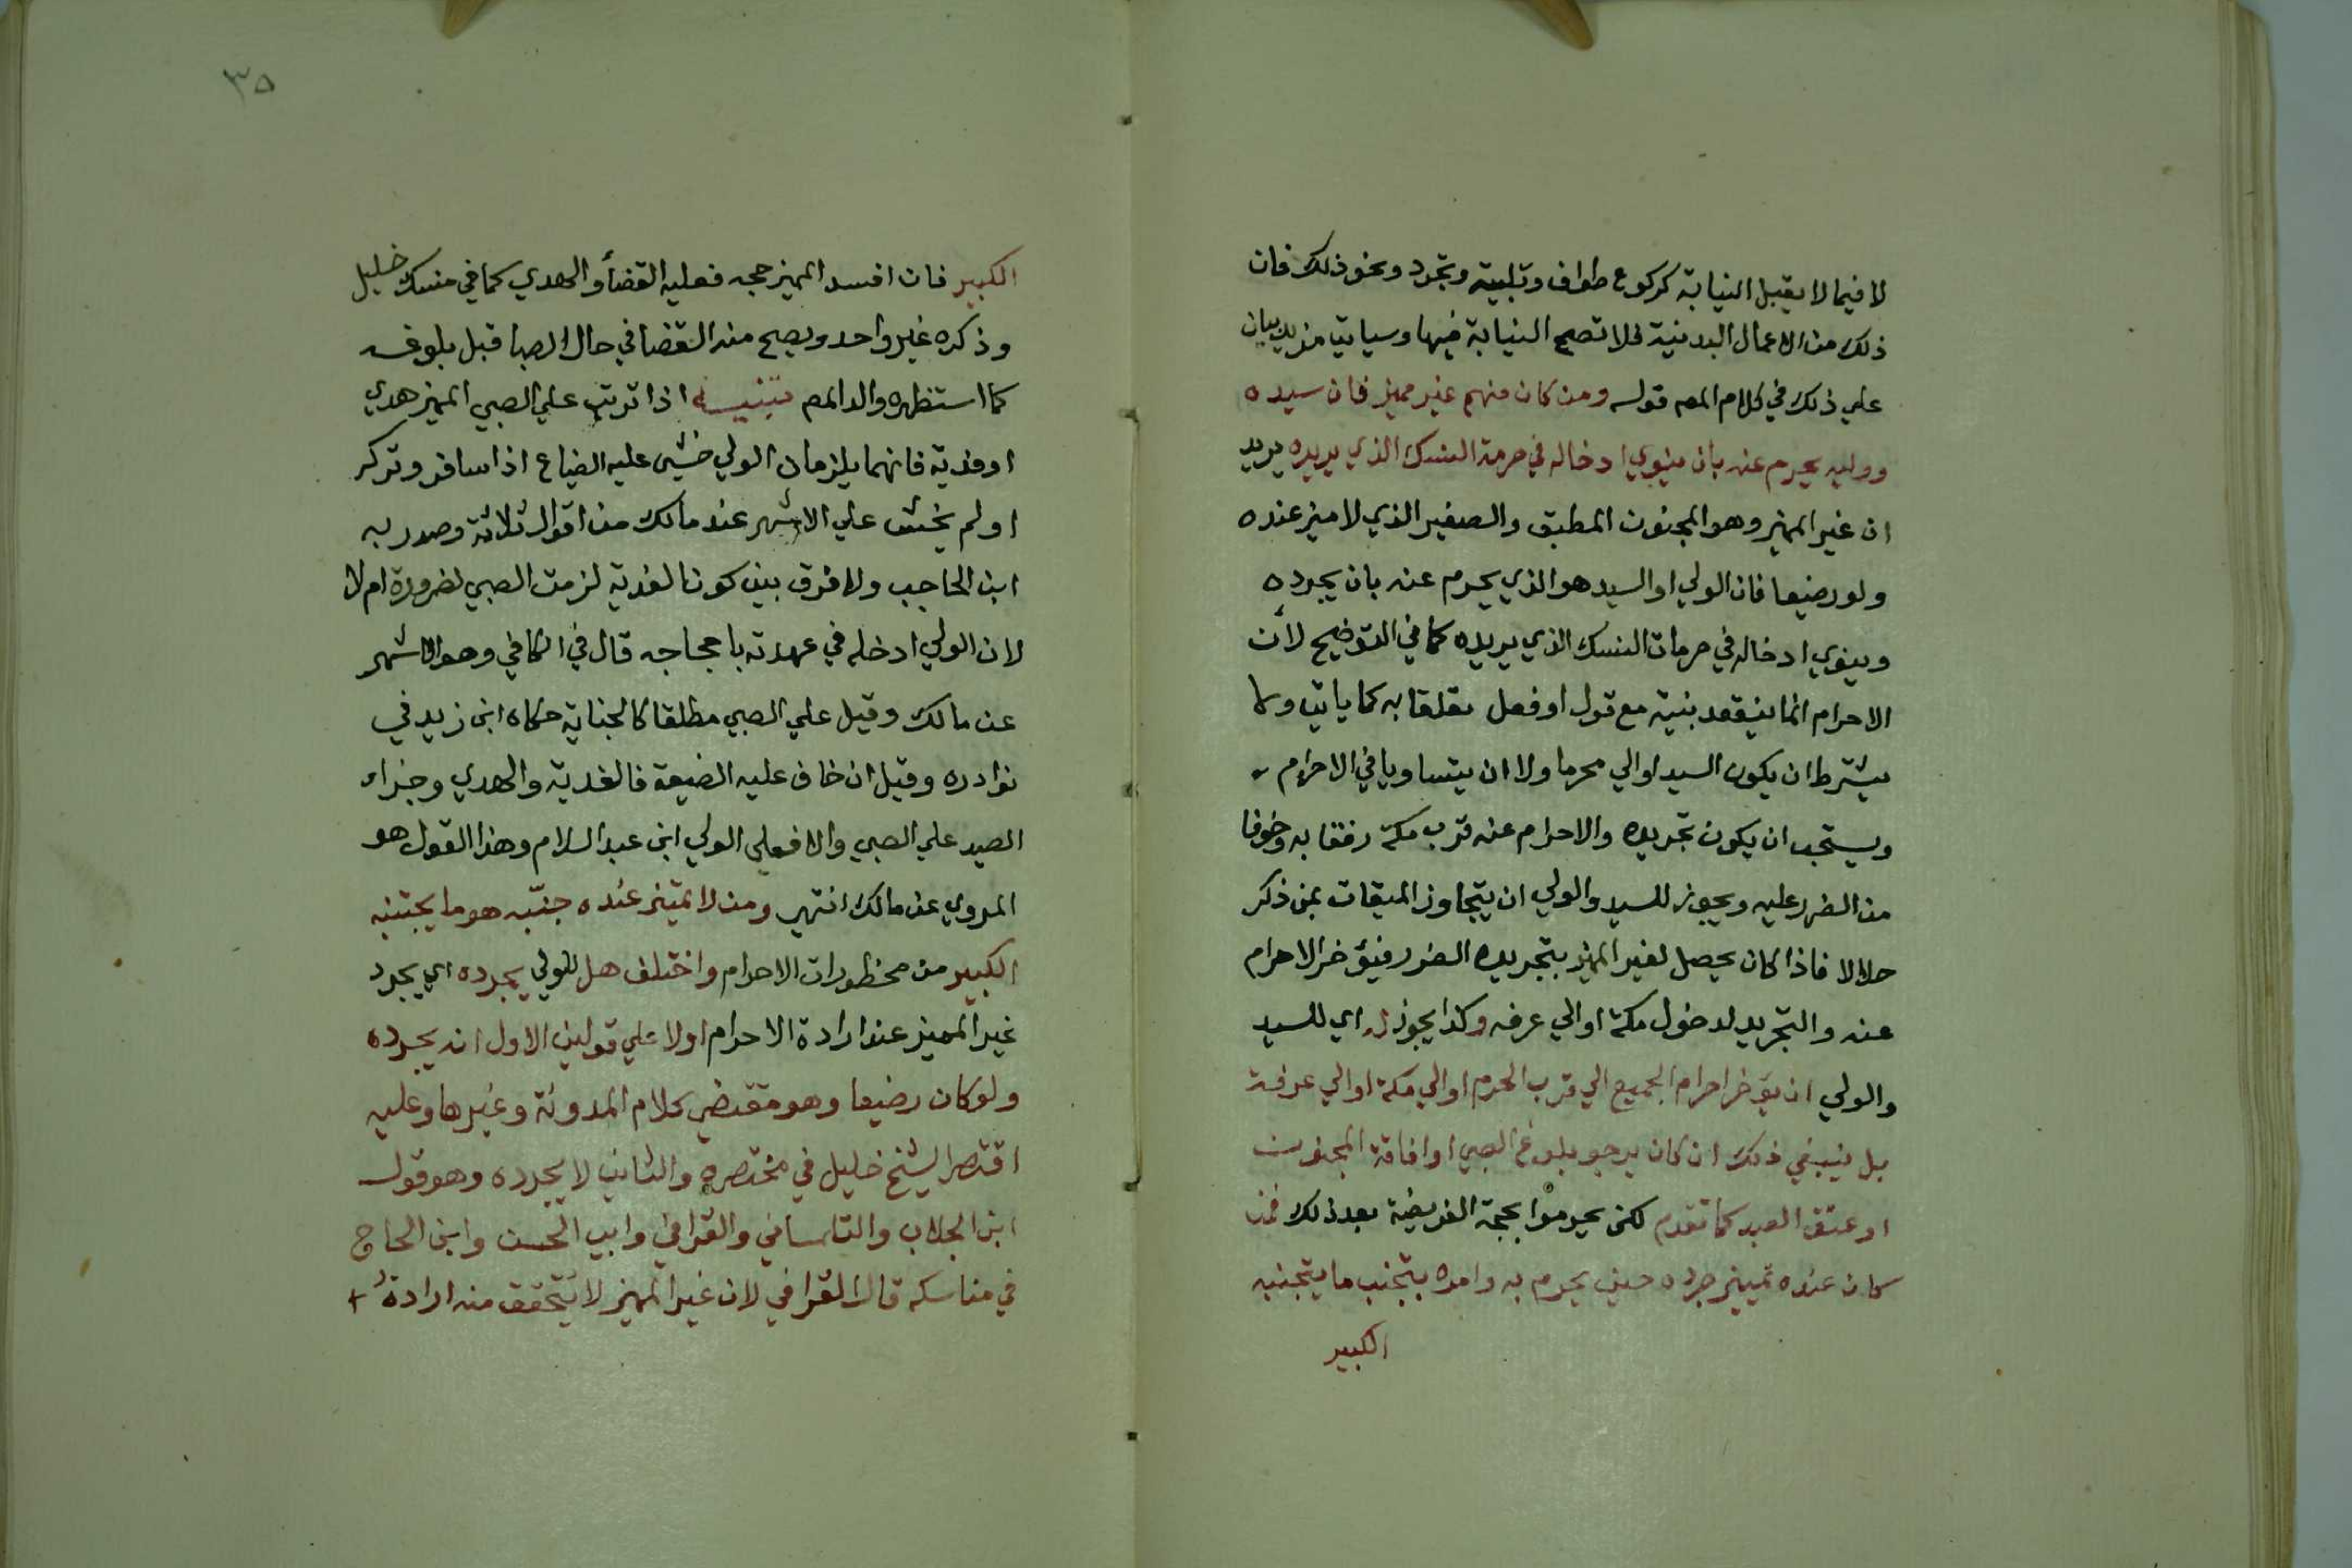 لا فيما لا يقبل النيابة كركوع طواف وتلبية وتجرد ونحو ذلك فان
ذلك من الاعمال البدنية فلا تصح النيابة فيها وسياتي مزيد بيان
علي ذلك في كلام المصم قوله ومن كان منهم غير مميز فان سيده
ووليه يحرم عنه بان ينوي ادخاله في حرمة النسك الذي يريده يريد
ان غير المميز وهو المجنون المطبق والصغير الذي لا ميز عنده
ولو رضيعا فان الولي او السيد هو الذي يحرم عنه بان يجرده
وينوي ادخاله في حرمات النسك الذي يريده كما في التوضيح لأن
الاحرام انما ينعقد بنية مع قول او فعل تعلقا به كما ياتي ولا
يشترط ان يكون السيد او الي محرما ولا ان يتساويا في الاحرام
ويستحب ان يكون تجريده والاحرام عنه قرب مكة رفقا به وخوفا
من الضرر عليه ويجوز للسيد والولي ان يتجاوز الميقات بمن ذكر
حلالا فاذا كان يحصل لغير المميز بتجريده الضرر فيؤخر الاحرام
عنه والتجريد لدخول مكة او الي عرفه وكذا يجوز له اي للسيد
والولي ان يؤخر احرام الجميع الي قرب الحرم او الي مكة او الي عرفة
بل ينبغي ذلك ان كان يرجو بلوغ الصبي او افاقة المجنون
او عتق العبد كما تقدم لكن يحرموا بحجة الفريضة بعد ذلك فمن
كان عنده تمييز جرده حين يحرم به وامره بتجنب ما يتجنبه
الكبير
٣٥
الكبير فان افسد المميز حجه فعليه القضأ والهدي كما في منسك خليل
وذكره غير واحد ويصح منه القضا في حال الصبا قبل بلوغه
كما استظهره والد المصم تنبيه اذا ترتب علي الصبي المميز هدي
او فدية فانهما يلزمان الولي خشي عليه الضياع اذا سافر وتركه
او لم يخش علي الاشهر عند مالك من اقوال ثلاثة وصدر به
ابن الحاجب ولا فرق بين كون الفدية لزمت الصبي لضرورة ام لا
لان الولي ادخله في عهدته باحجاجه قال في الكافي وهو الاشهر
عن مالك وقيل علي الصبي مطلقا كالجناية حكاه ابن زيد في
نوادره وقيل ان خاف عليه الضيعة فالفدية والهدي وجزاء
الصيد علي الصبي والا فعلي الولي ابن عبد السلام وهذا القول هو
المروي عن مالك انتهي ومن لا تمييز عنده جنّبه هو ما يجتنبه
الكبير من محظورات الاحرام واختلف هل للولي يجرده اي يجرد
غير المميز عند ارادة الاحرام اولا علي قولين الاول انه يجرده
ولو كان رضيعا وهو مقتضي كلام المدونة وغيرها وعليه
اقتصر الشيخ خليل في مختصره والثاني لا يجرده وهو قول
ابن الجلاب والتلمساني والقرافي وابي الحسن وابن الحاج
في مناسكه قال القرافي لان غير المميز لا يتحقق منه ارادة